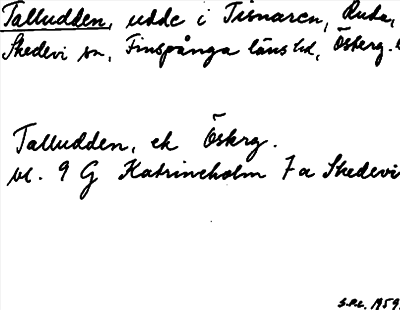 Talludden, udde i Tisnaren, Ruda,
Skedevi sn, Finspånga läns hd, Österg.
Talludden, ek Österg.
bl. 9 G Katrineholm 7a Skedevi
1959